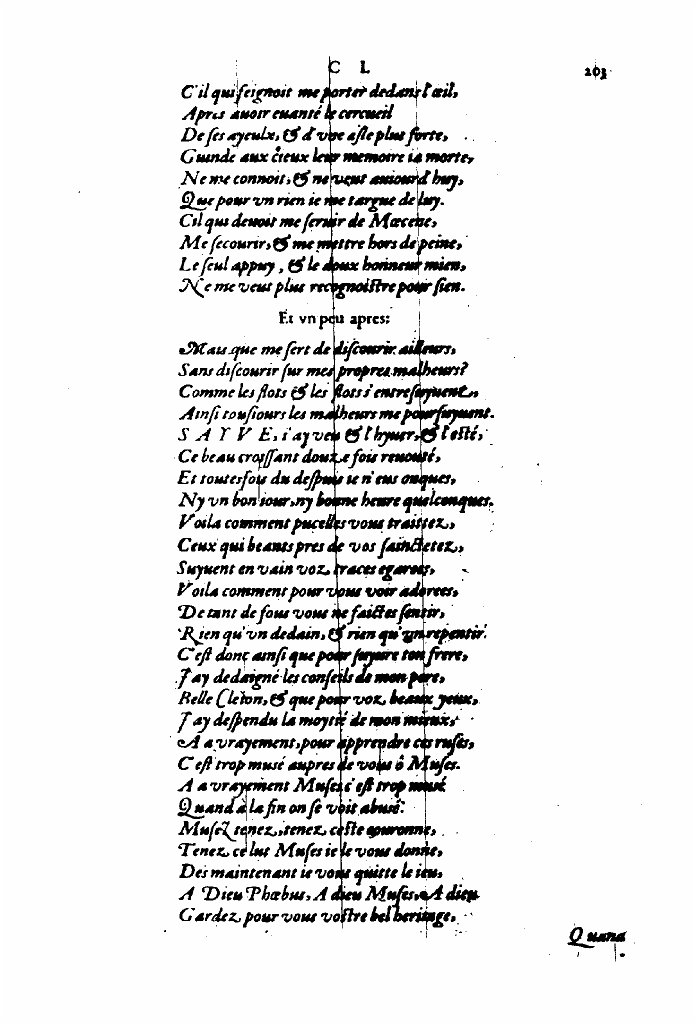 C L 203
C'il qui feignoit me porter dedans l'œil,
Apres auoir euanté le cercueil
De ses ayeulx, & d'vne aisle plus forte,
Guinde aux cieux leur memoire ia morte,
Ne me connoit, & ne veut auiourd'huy,
Que pour vn rien ie me targue de luy.
Cil qui deuoit me seruir de Mœcene,
Me secourir, & me mettre hors de peine,
Le seul appuy, & le doux honneur mien,
Ne me veut plus recognoistre pour sien.
Et vn peu apres:
Mais que me sert de discourir ailleurs,
Sans discourir sur mes propres malheurs?
Comme les flots & les flots s'entresuyuent,
Ainsi tousiours les malheurs me poursuyuent.
SAYVE, i'ay veu & l'hyuer, & l'esté,
Ce beau croissant douze fois renouté,
Et toutesfois du despuis ie n'eus onques,
Ny vn bon iour, ny bonne heure quelconques.
Voila comment pucelles vous traittez,
Ceux qui beants pres de vos sainctetez,
Suyuent en vain voz traces egarees,
Voila comment pour vous voir adorees,
De tant de fous vous ne faictes sentir,
Rien qu'vn dedain, & rien qu'vn repentir.
C'est donc ainsi que pour suyure ton frere,
J'ay dedaigné les conseils de mon pere,
Belle Cleion, & que pour voz beaux yeux,
J'ay despendu la moytié de mon mieux,
A a vrayement, pour apprendre ces ruses,
C'est trop musé aupres de vous ô Muses.
A a vrayement Muses c'est trop musé
Quand à la fin on se voit abusé:
Musez tenez, tenez ceste couronne,
Tenez ce lut Muses ie le vous donne,
Des maintenant ie vous quitte le ieu,
A Dieu Phœbus, A dieu Muses, A dieu
Gardez pour vous vostre bel heritage,
Quand